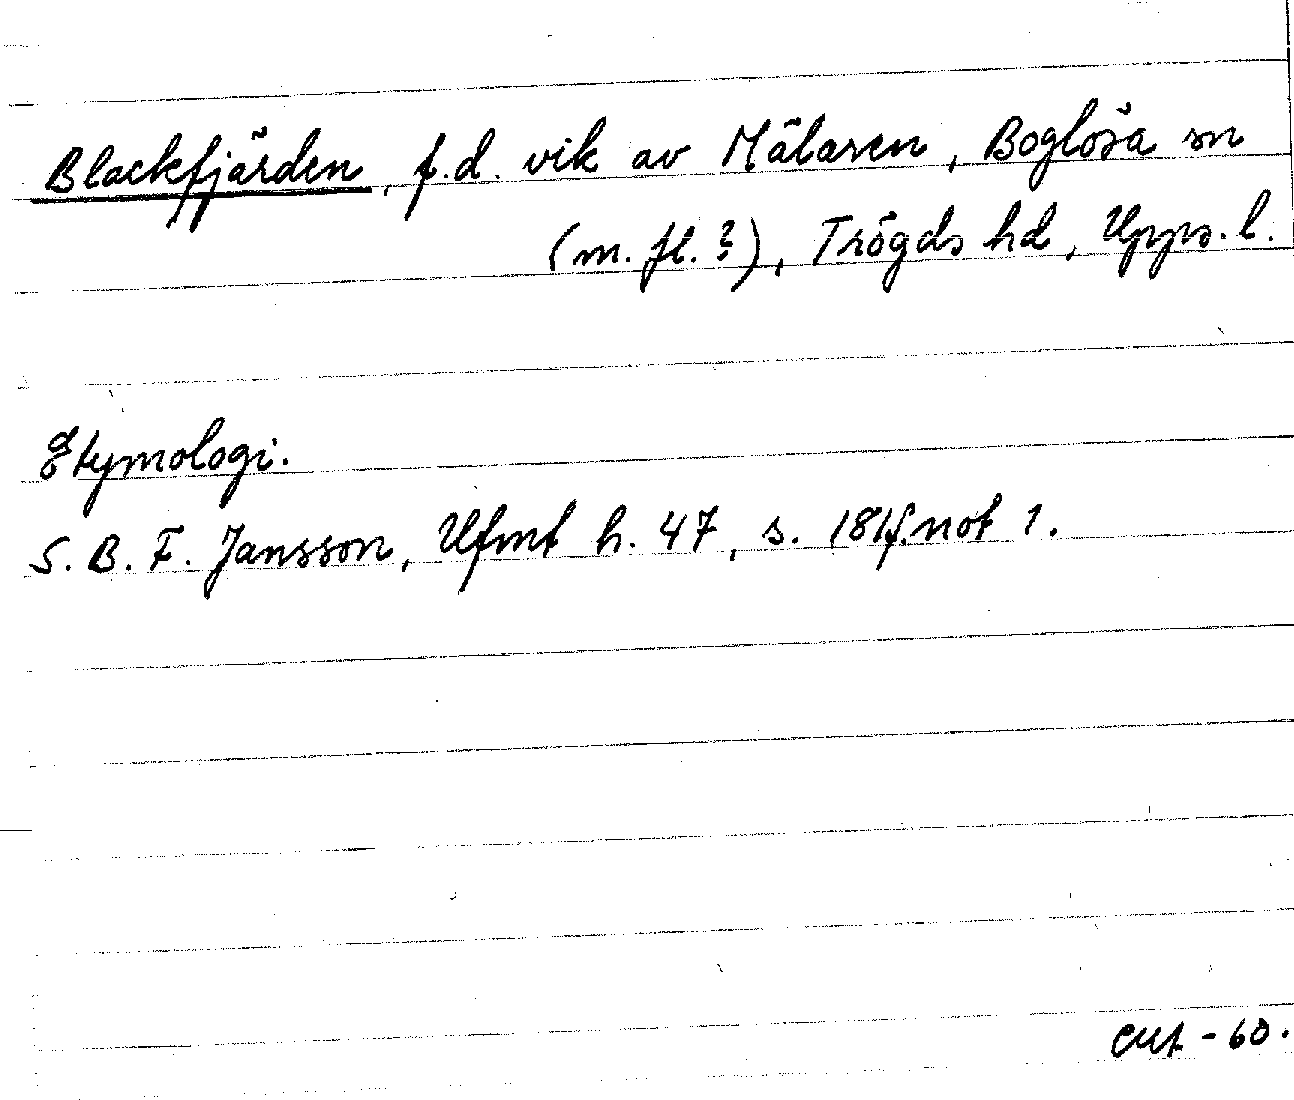 Blackfjärden, f.d. vik av Mälaren, Boglösa sn
(m. fl. ?), Trögds hd, Upps. l.
Etymologi.
S. B. F. Jansson, Ufmt h. 47, s. 181f. not 1.
-60.